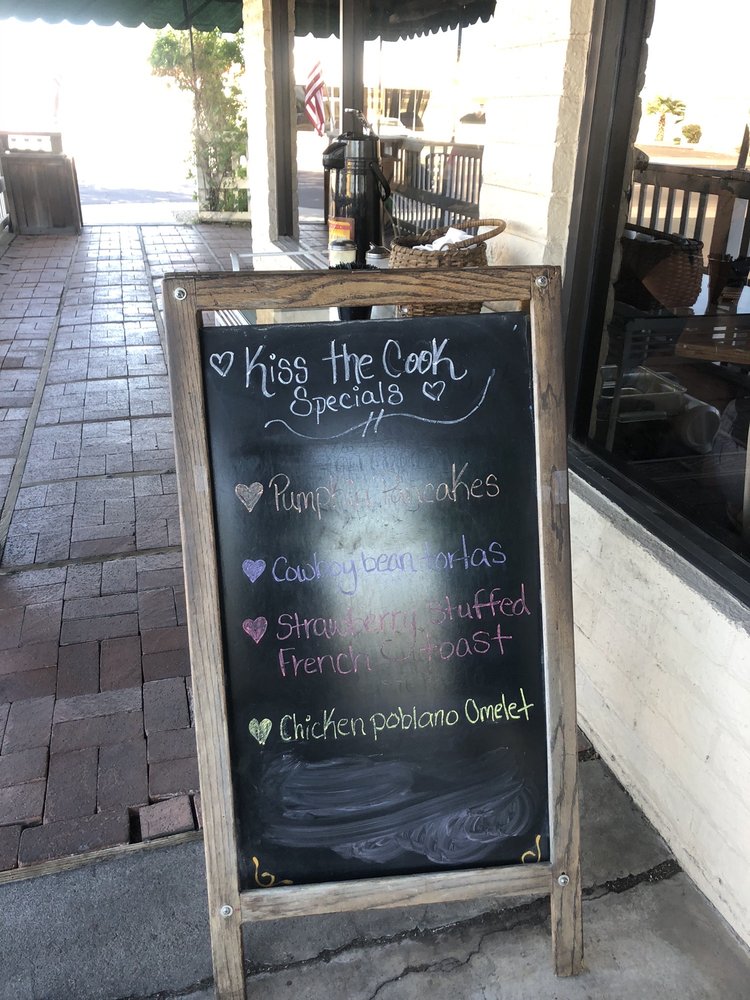 Kiss the Cook
Specials
Pumpkin Pancakes
Cowboy bean tortas
Strawberry Stuffed
French toast
Chicken poblano Omelet